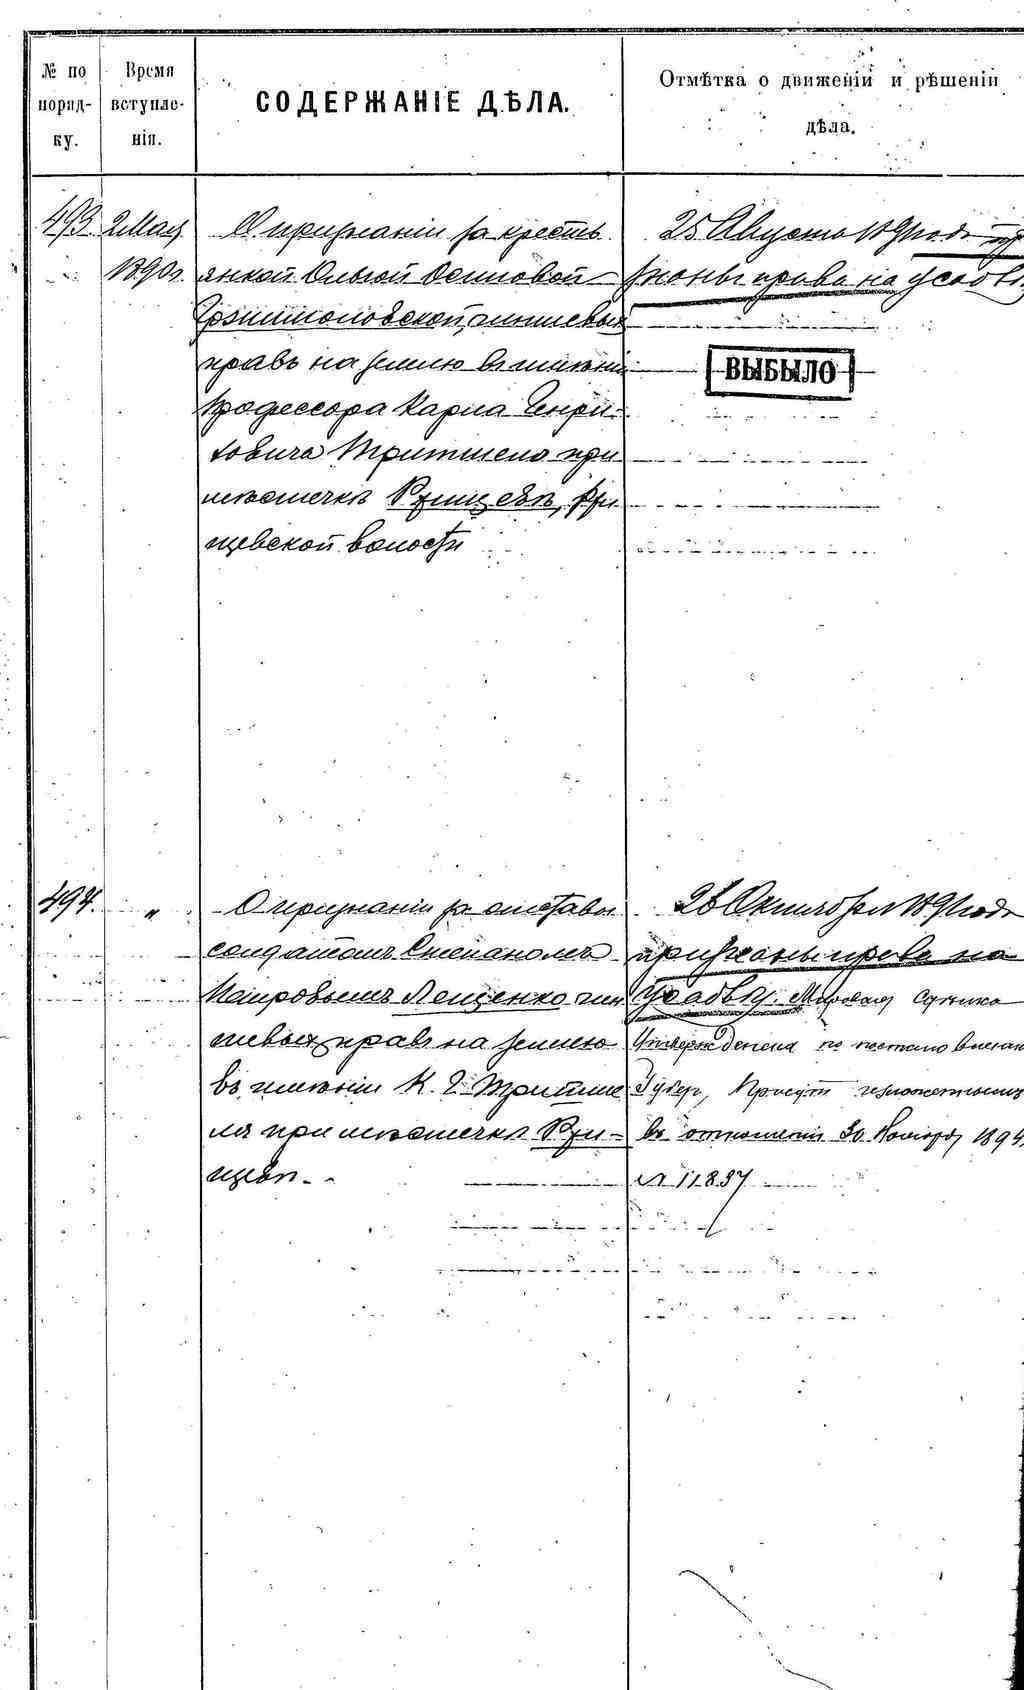 № по
поряд-
ку.
Время
вступле-
нія.
СОДЕРЖАНІЕ ДѢЛА.
Отмѣтка о движеніи и рѣшеніи
дѣла.
493 2 Мая
1890 г.
О признаніи за кресть
янкой Ольгой Осиповой
чиншевых
правъ на землю въ имѣніи
Профессора Карла Генри
ховича Тритшеля при
мѣстечкѣ Ржищевѣ, Ржи
щевской волости
25 Августа 1891 года при
знаны права на усадьбу
ВЫБЫЛО
494. "
О признаніи за отставн
солдатомъ Степаномъ
Лещенко чин
шевыхъ правъ на землю
въ имѣніи К. Г. Тритше
ля при мѣстечкѣ Ржи-
щевѣ.
26 Октября 1891 года
признаны права на
усадьбу. Мировая Сдѣлка
Утверждена по постановлению
Губер. Присут. изложенному
въ отношеніи 30 Ноября 1894
№ 11837